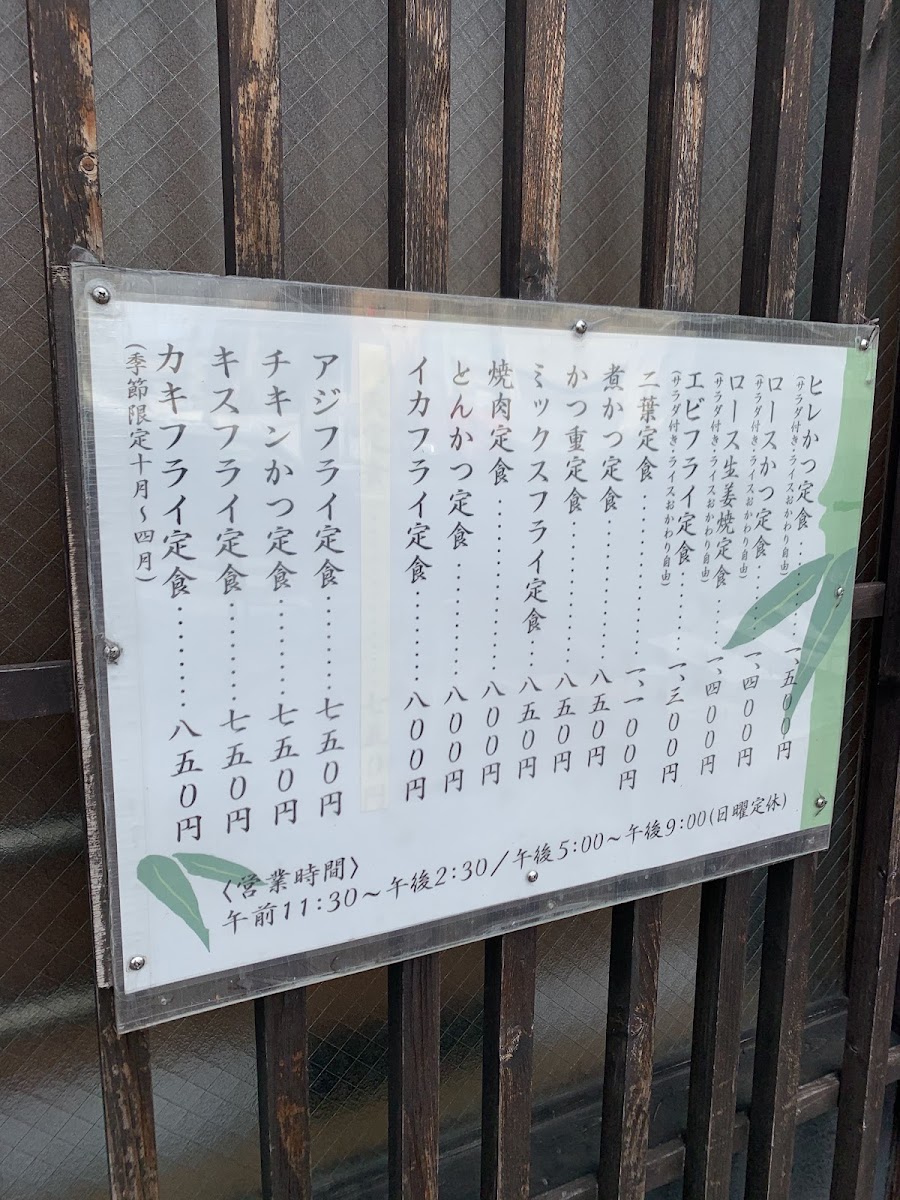 ヒレかつ定食………一、五〇〇円
(サラダ付き・ライスおかわり自由)
ロースかつ定食………一、四〇〇円
(サラダ付き・ライスおかわり自由)
ロース生姜焼定食………一、四〇〇円
(サラダ付き・ライスおかわり自由)
エビフライ定食………一、三〇〇円
(サラダ付き・ライスおかわり自由)
二葉定食………一、一〇〇円
煮かつ定食………八五〇円
かつ重定食………八五〇円
ミックスフライ定食………八五〇円
焼肉定食………八〇〇円
とんかつ定食………八〇〇円
イカフライ定食………八〇〇円
アジフライ定食………七五〇円
チキンかつ定食………七五〇円
キスフライ定食………七五〇円
カキフライ定食………八五〇円
(季節限定十月～四月)
〈営業時間〉
午前11:30～午後2:30／午後5:00～午後9:00(日曜定休)